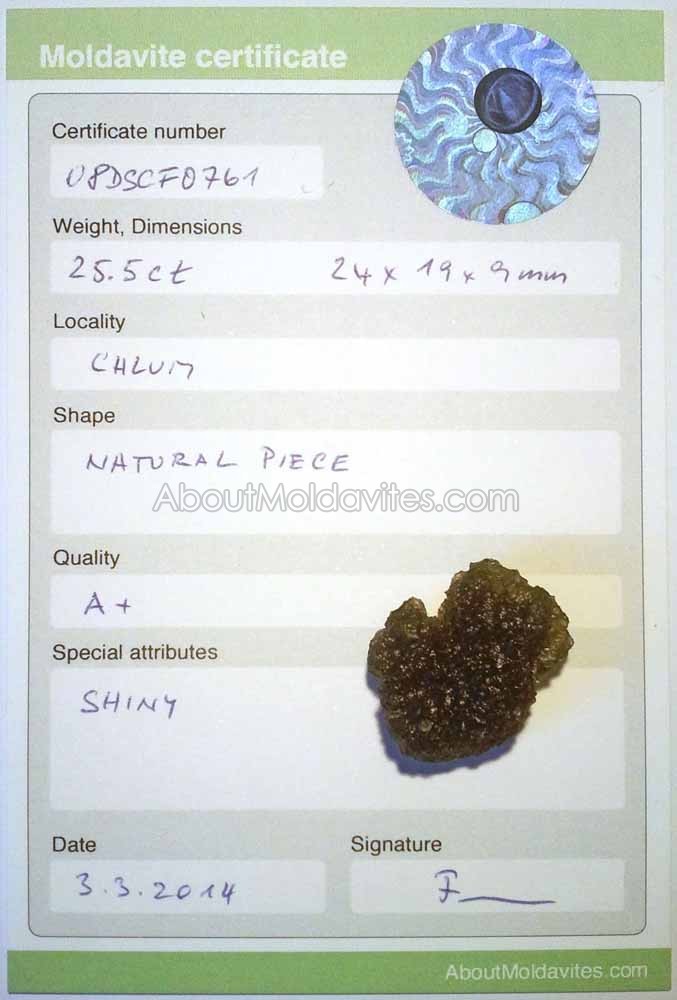 Moldavite certificate
Certificate number
08DSCF0761
Weight, Dimensions
25.5ct 24 x 19 x 9 mm
Locality
CHLUM
Shape
NATURAL PIECE
AboutMoldavites.com
Quality
A+
Special attributes
SHINY
Date Signature
3.3.2014
AboutMoldavites.com